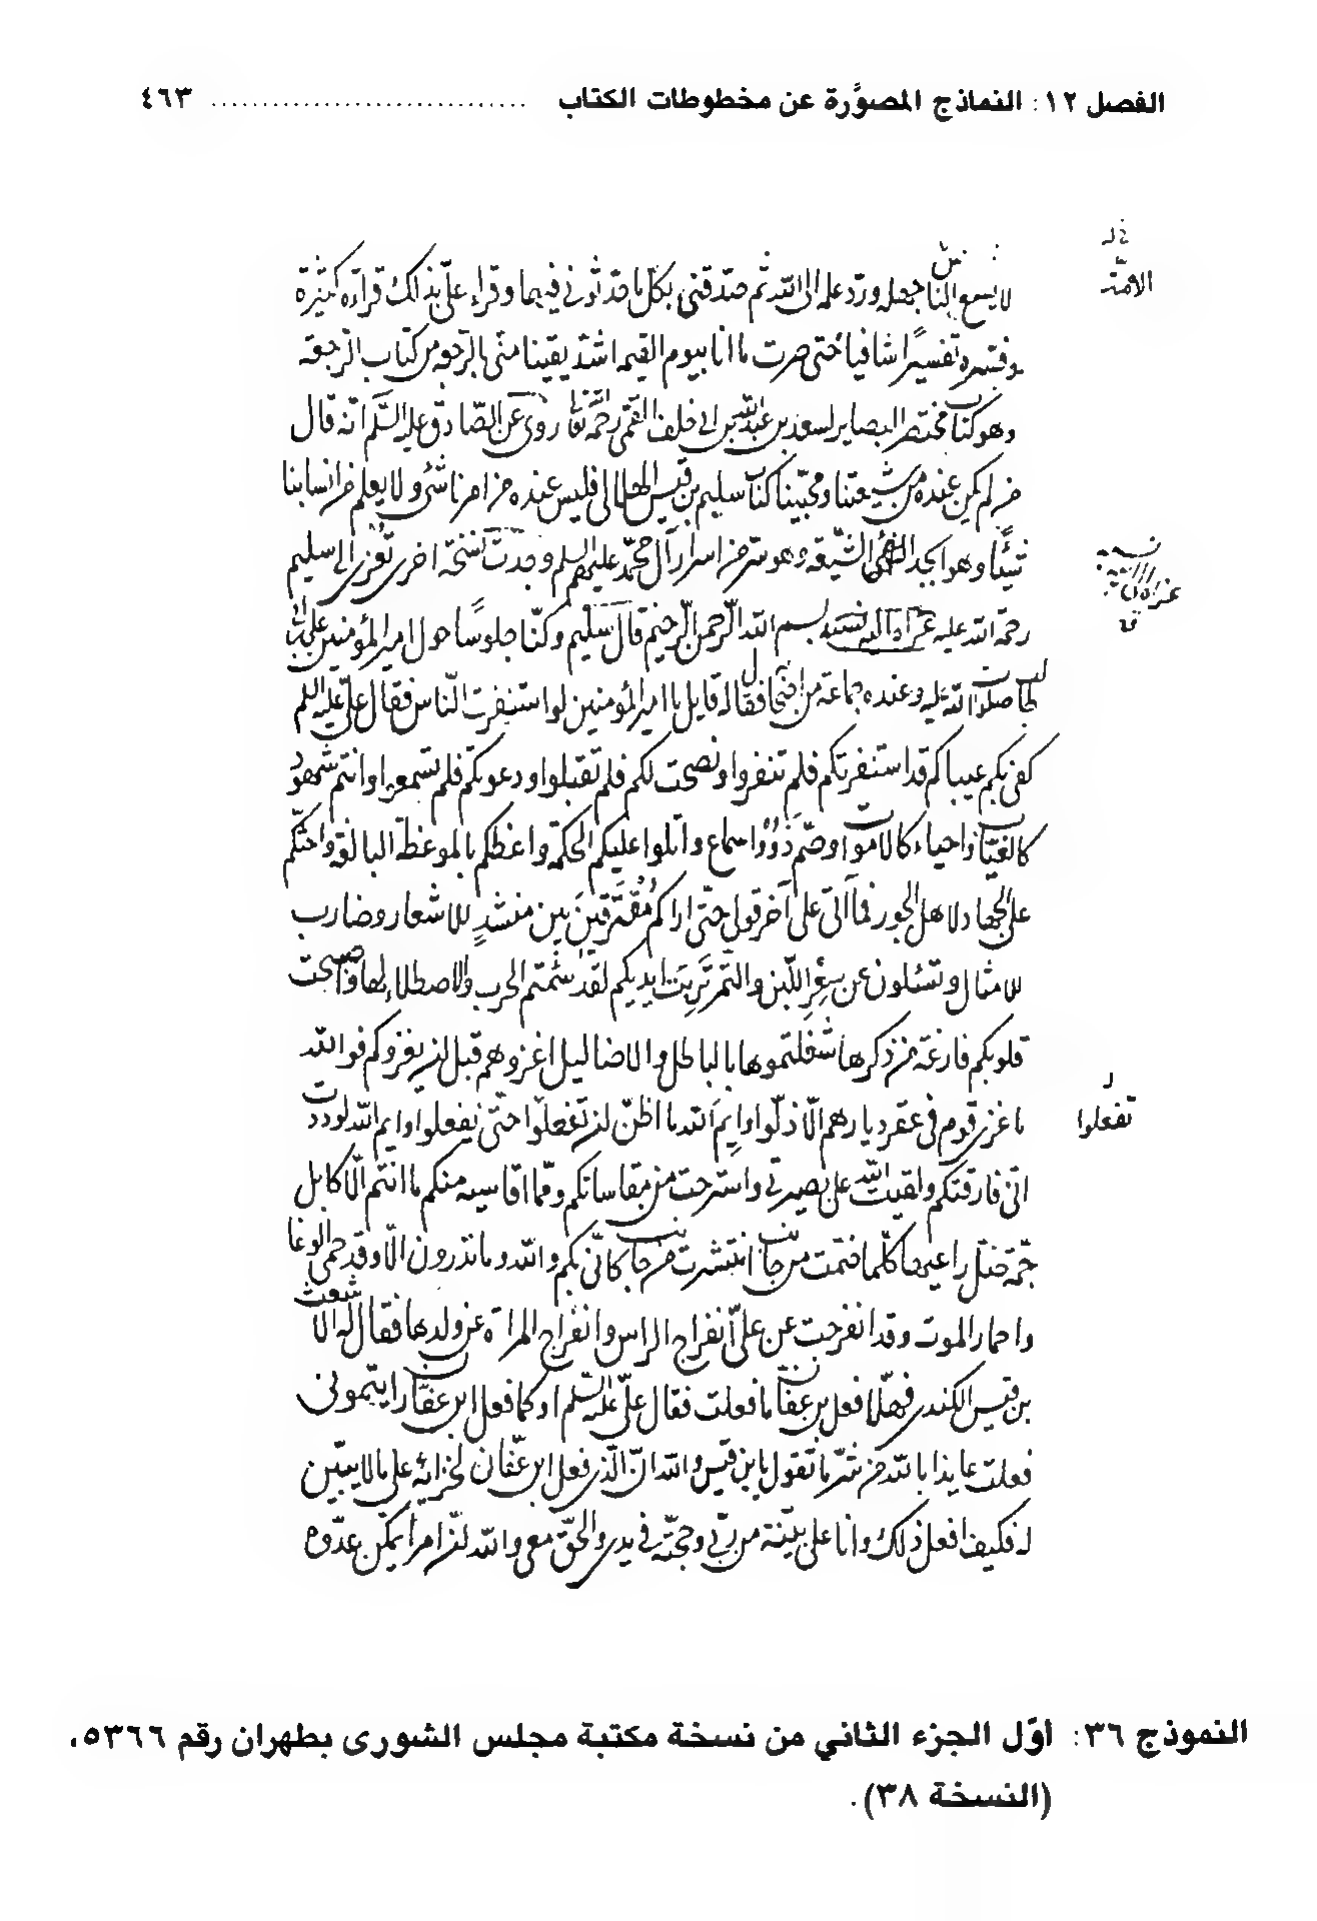 الفصل ١٢: النماذج المصوَّرة عن مخطوطات الكتاب ............................. ٤٦٣
خ ل
الامة
لا يسع الناس جهله وردّ علمه الى الله ثم صدقني بكل ما حدثوني فيها وقراء علىّ بذلك قراءه كثيرة
وفسره تفسيرًا شافيا حتى صرت ما انا بيوم القيمه اشد يقينا منّى بالرجعه من كتاب الرجعة
وهو كتاب مختصر البصاير لسعد بن عبد الله بن ابي خلف القمّى رحمه الله تعا روى عن الصّادق عليه السّلم انّه قال
من لم يكن عنده من شيعتنا ومحبّينا كتاب سليم بن قيس الهلالى فليس عنده من امرنا شىء ولا يعلم من اسبابنا
شيئًا وهو ابجد الشّيعه وهو سرّ من اسرار آل محمّد عليهم السلم وجدت نسخة اخرى تعزى الى سليم
رحمة الله عليه بسم الله الرّحمن الرّحيم قال سليم وكنّا جلوسًا حول امير المؤمنين على بن ابى
طالب صلوات الله عليه وعنده جماعة من اصحابه فقال له قايل يا امير المؤمنين لو استنفرت النّاس فقال علىّ عليه السلم
كفى بكم عيبا كم قد استنفرتكم فلم تنفروا ونصحت لكم فلم تقبلوا ودعوتكم فلم تسمعوا وانتم شهود
كالغيّاب واحياء كالاموات وصمّ ذووا اسماع واتلوا عليكم الحكمة واعظكم بالموعظة البالغة واحثّكم
على الجهاد لاهل الجور فما آتى على آخر قولى حتّى اراكم مُتَفَرّقينَ بين منشدٍ للاشعار وضارب
للامثال وتسئلون عن سِعْرِ اللّبن والتّمر تَرِبَتْ ايديكم لقد سئمتم الحرب والاصطلاء لها واصبحت
قلوبكم فارغة من ذكرها شغلتموها بالباطل والاضاليل اغزوهم قبل ان يغزوكم فوالله
ما غزى قوم فى عقر ديارهم الّا ذلّوا وايم الله ما اظنّ ان تفعلوا حتّى يفعلوا وايم الله لوددت
تفعلوا
انّى فارقتكم ولقيت الله على بصيرتى واسترحت من مقاساتكم وممّا اقاسيه منكم ما انتم الّا كابل
جمّة ضلّ راعيها كلّما ضمّت من جانب انتشرت من جانب كانّى بكم والله وما تذرون الّا وقد حمى الوغا
واحمار الموت وقد انفرجت عن علىّ انفراج الراس وانفراج المراة عن ولدها فقال له الاشعث
بن قيس الكندى فهلّا فعل بن عفّان ما فعلت فقال علىّ عليه السّلم او كما فعل ابن عفّان رايتمونى
فعلت عايذا بالله من شرّ ما تقول يا بن قيس والله انّ الّذى فعل ابن عفّان لخزاية على ما لا يبيّن
له فكيف افعل ذلك وانا على بيّنة من ربّى وحجّته فى يدى والحقّ معى والله انّ امرأ يمكّن عدّوه
النموذج ٣٦: أوّل الجزء الثاني من نسخة مكتبة مجلس الشورى بطهران رقم ٥٣٦٦،
(النسخة ٣٨).